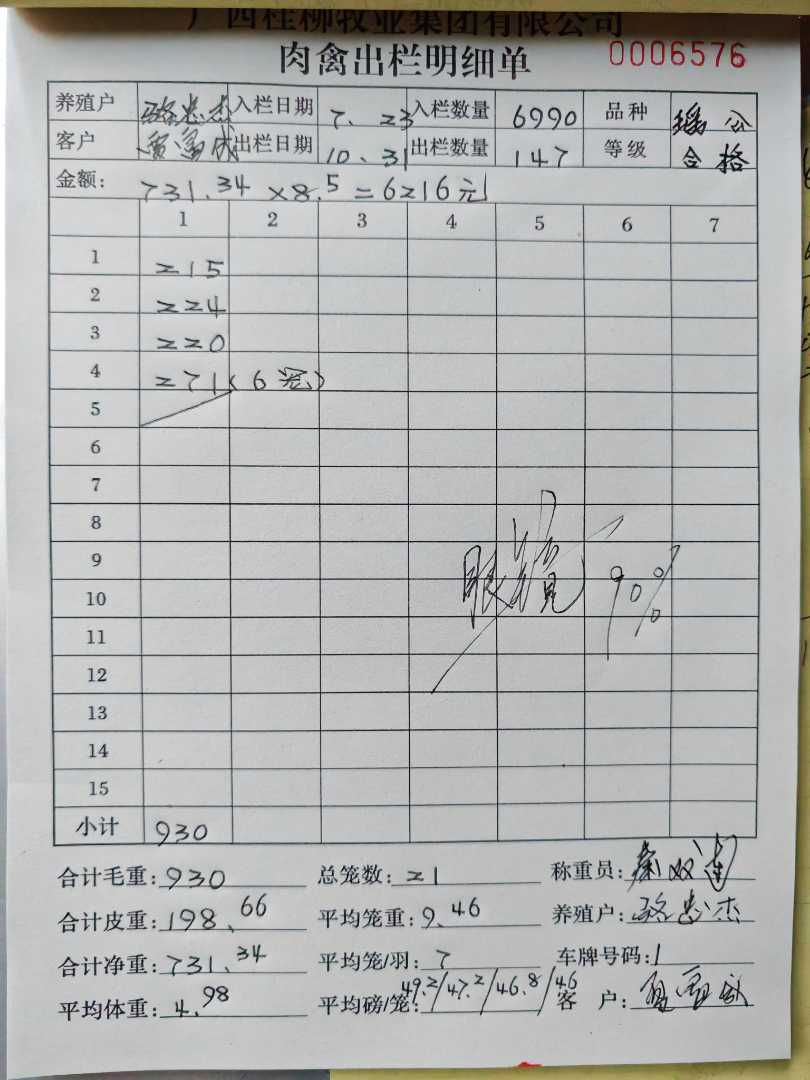 广西桂柳牧业集团有限公司
肉禽出栏明细单 0006576
养殖户 骆忠杰 入栏日期 7、23 入栏数量 6990 品种 瑶公
客户 出栏日期 10、31 出栏数量 147 等级 合格
金额: 731.34×8.5=6216元
1 2 3 4 5 6 7
1 215
2 224
3 220
4 271(6笼)
5
6
7
8
9 眼镜 90%
10
11
12
13
14
15
小计 930
合计毛重:930 总笼数:21 称重员:秦双莲
合计皮重:198.66 平均笼重:9.46 养殖户:骆忠杰
合计净重:731.34 平均笼/羽:7 车牌号码:1
平均体重:4.98 平均磅/笼:49.2/47.2/46.8/46 客户: